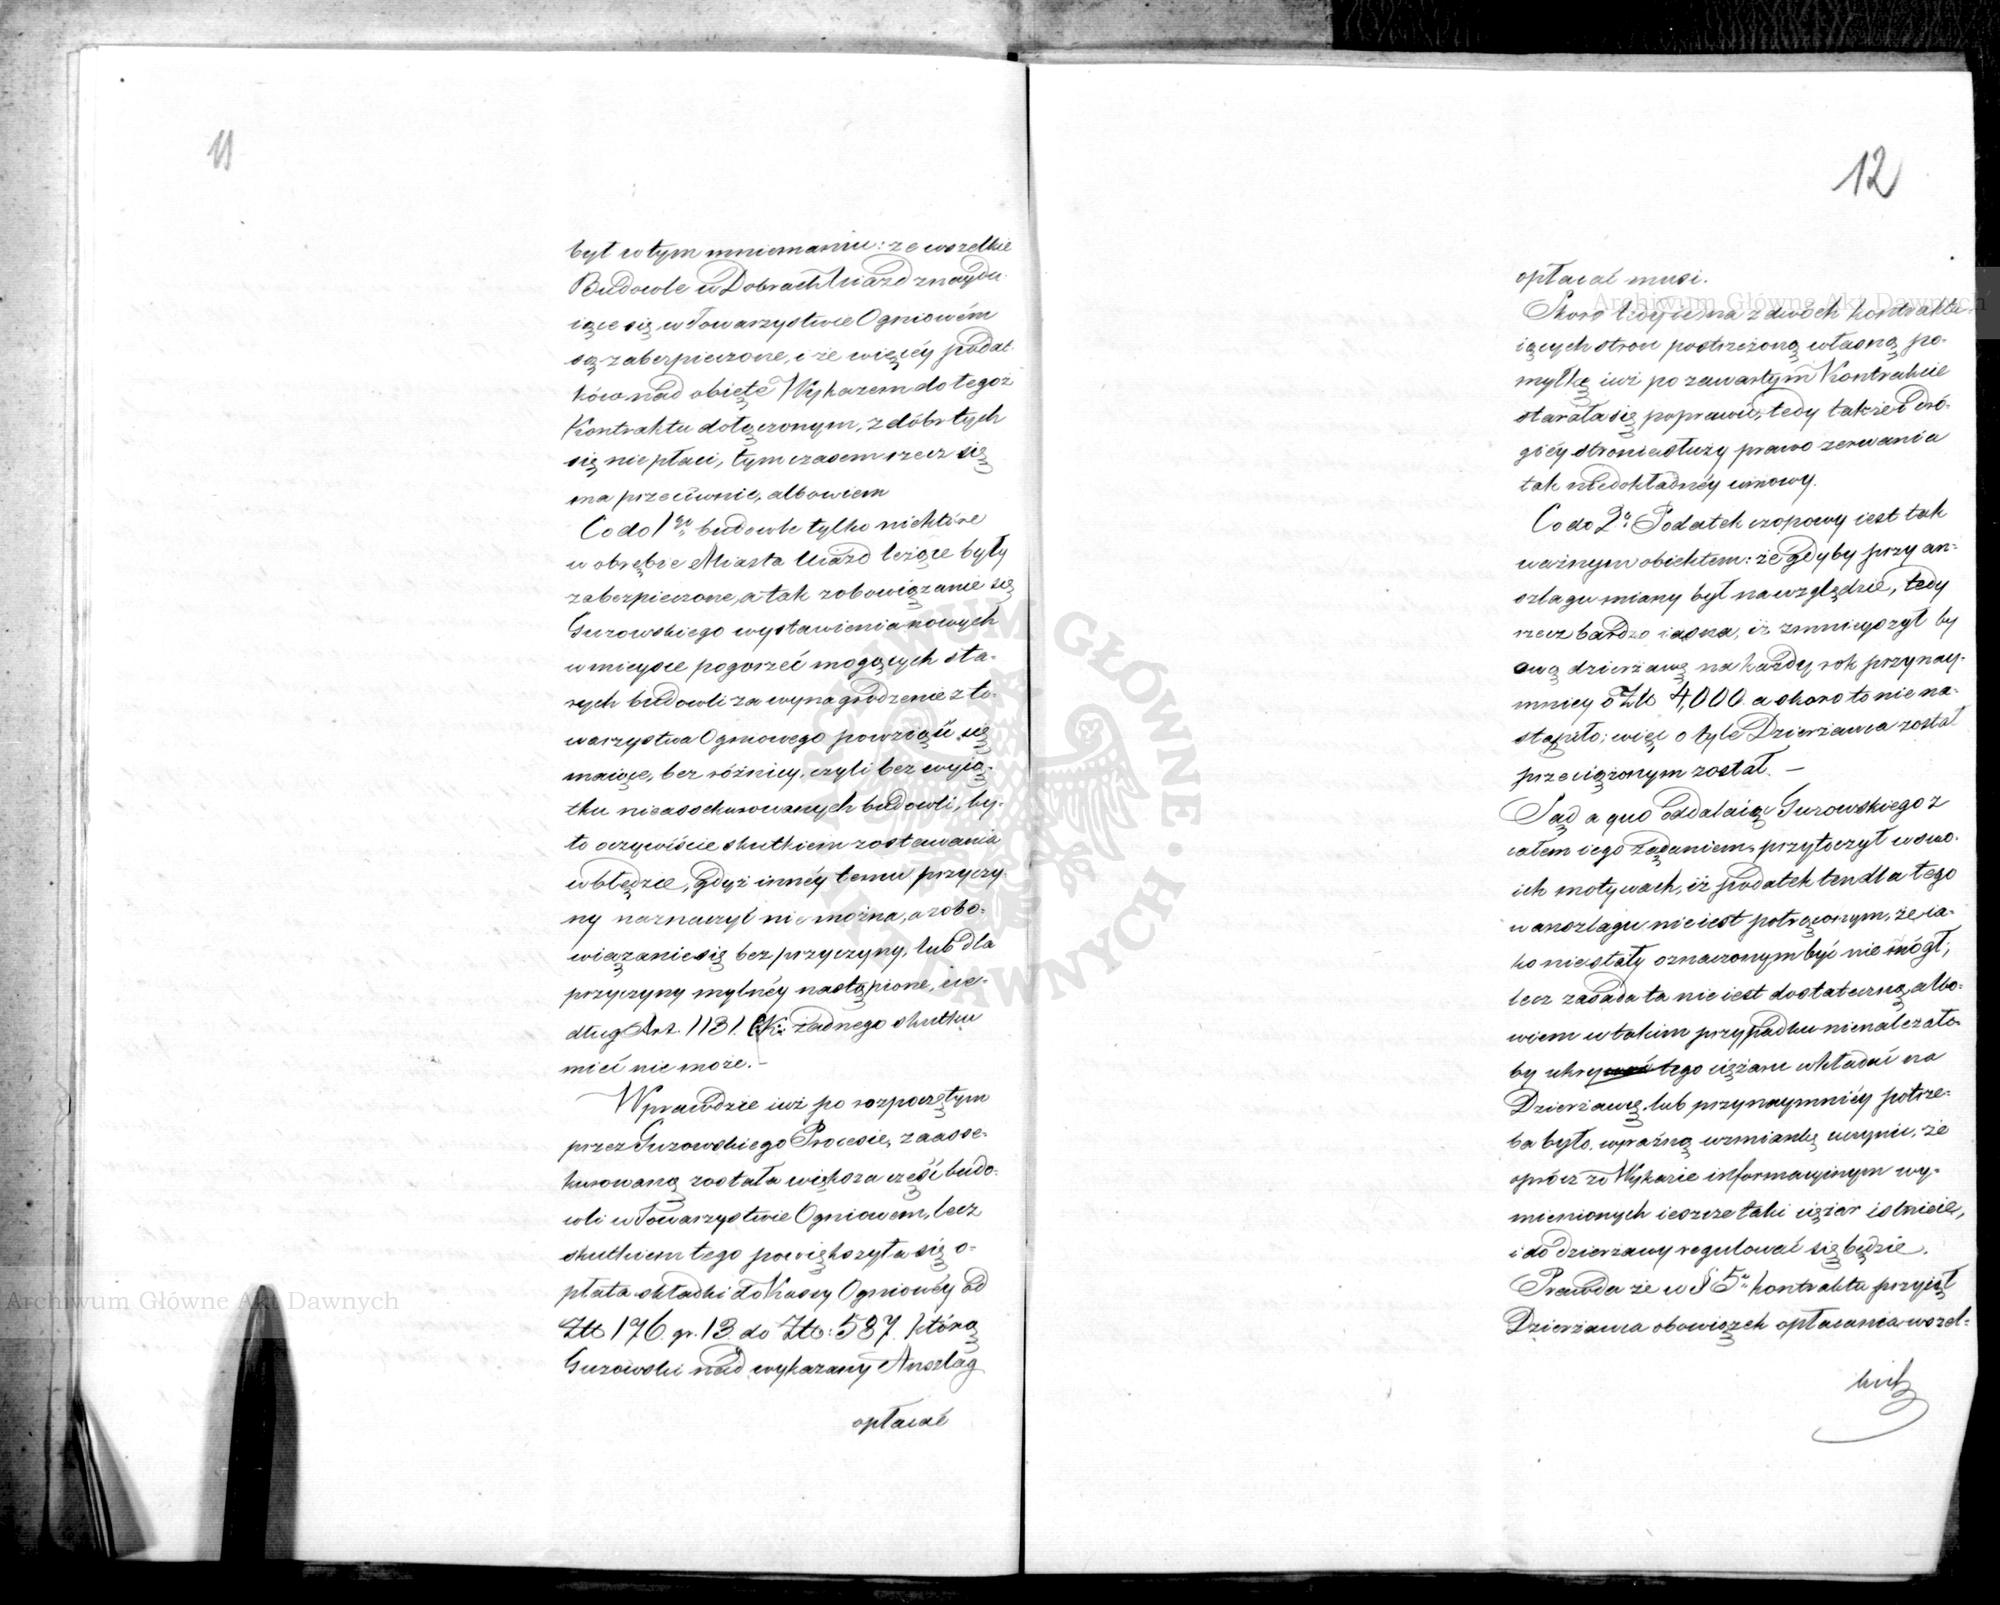 11
był w tym mniemaniu: że wszelkie
Budowle w Dobrach Uiazd znaydu-
iące się, w Towarzystwie Ogniowém
są zabezpieczone, i że więcéy podat-
ków nad obięte Wykazem do tegoż
Kontraktu dołączonym, z dóbr tych
się nie płaci, tymczasem rzecz się
ma przeciwnie, albowiem
Co do 1go budowle tylko niektóre
w obrębie Miasta Uiazd leżące były
zabezpieczone, a tak zobowiązanie się
Gurowskiego wystawienia nowych
w mieysce pogorzeć mogących sta-
rych budowli za wynagrodzenie z to-
warzystwa Ogniowego powziąść się
maiące, bez różnicy, czyli bez wyią-
tku nieassekurowanych budowli, by-
ło oczywiście skutkiem zostawania
w błędzie, gdyż innéy temu przyczy-
ny naznaczyć nie można, a zobo-
wiązanie się bez przyczyny, lub dla
przyczyny mylnéy nastąpione, we-
dług Art. 1131. KC. żadnego skutku
mieć nie może. –
Wprawdzie iuż po rozpoczętym
przez Gurowskiego Procesie, zaasse-
kurowaną została większa część budo-
wli w Towarzystwie Ogniowem, lecz
skutkiem tego powiększyła się o-
płata składki do Kassy Ogniowéy od
Złł 176. gr. 13. do Złł: 587. którą
Gurowski nad wykazany Anszlag
opłacać
12
opłacać musi.
Skoro tedy iedna z dwóch kontraktu-
iących stron postrzeżoną własną po-
myłkę iuż po zawartym Kontrakcie
starała się poprawić, tedy także i dru-
giéy stronie służy prawo zerwania
tak niedokładnéy umowy.
Co do 2o Podatek czopowy iest tak
ważnym obiektem: że gdyby przy an-
szlagu miany był na względzie, tedy
rzecz bardzo iasna, iż zmnieyszył by
ową dzierżawę na każdy rok przynay-
mniey o Złł 4,000. a skoro to nie na-
stąpiło; więc o tyle Dzierżawca został
przeciążonym został. –
Sąd a quo oddalaiąc Gurowskiego z
całem iego żądaniem, przytoczył w swo-
ich motywach, iż podatek ten dla tego
w anszlagu nie iest potrąconym, że ia-
ko niestały oznaczonym być nie mógł;
lecz zasada ta nie iest dostateczną, albo-
wiem w takim przypadku nienależało-
by ukry tego ciężaru wkładać na
Dzierżawcę, lub przynaymniéy potrze-
ba było, wyraźną wzmiankę uczynić, że
oprócz w Wykazie informacyinym wy-
mienionych ieszcze taki ciężar istnieie,
i do dzierżawy regulować się będzie.
Prawda że w § 5m kontraktu przyiął
Dzierżawca obowiązek opłacania wszel-
kich
Archiwum Główne Akt Dawnych
Archiwum Główne Akt Dawnych
ARCHIWUM GŁÓWNE AKT DAWNYCH